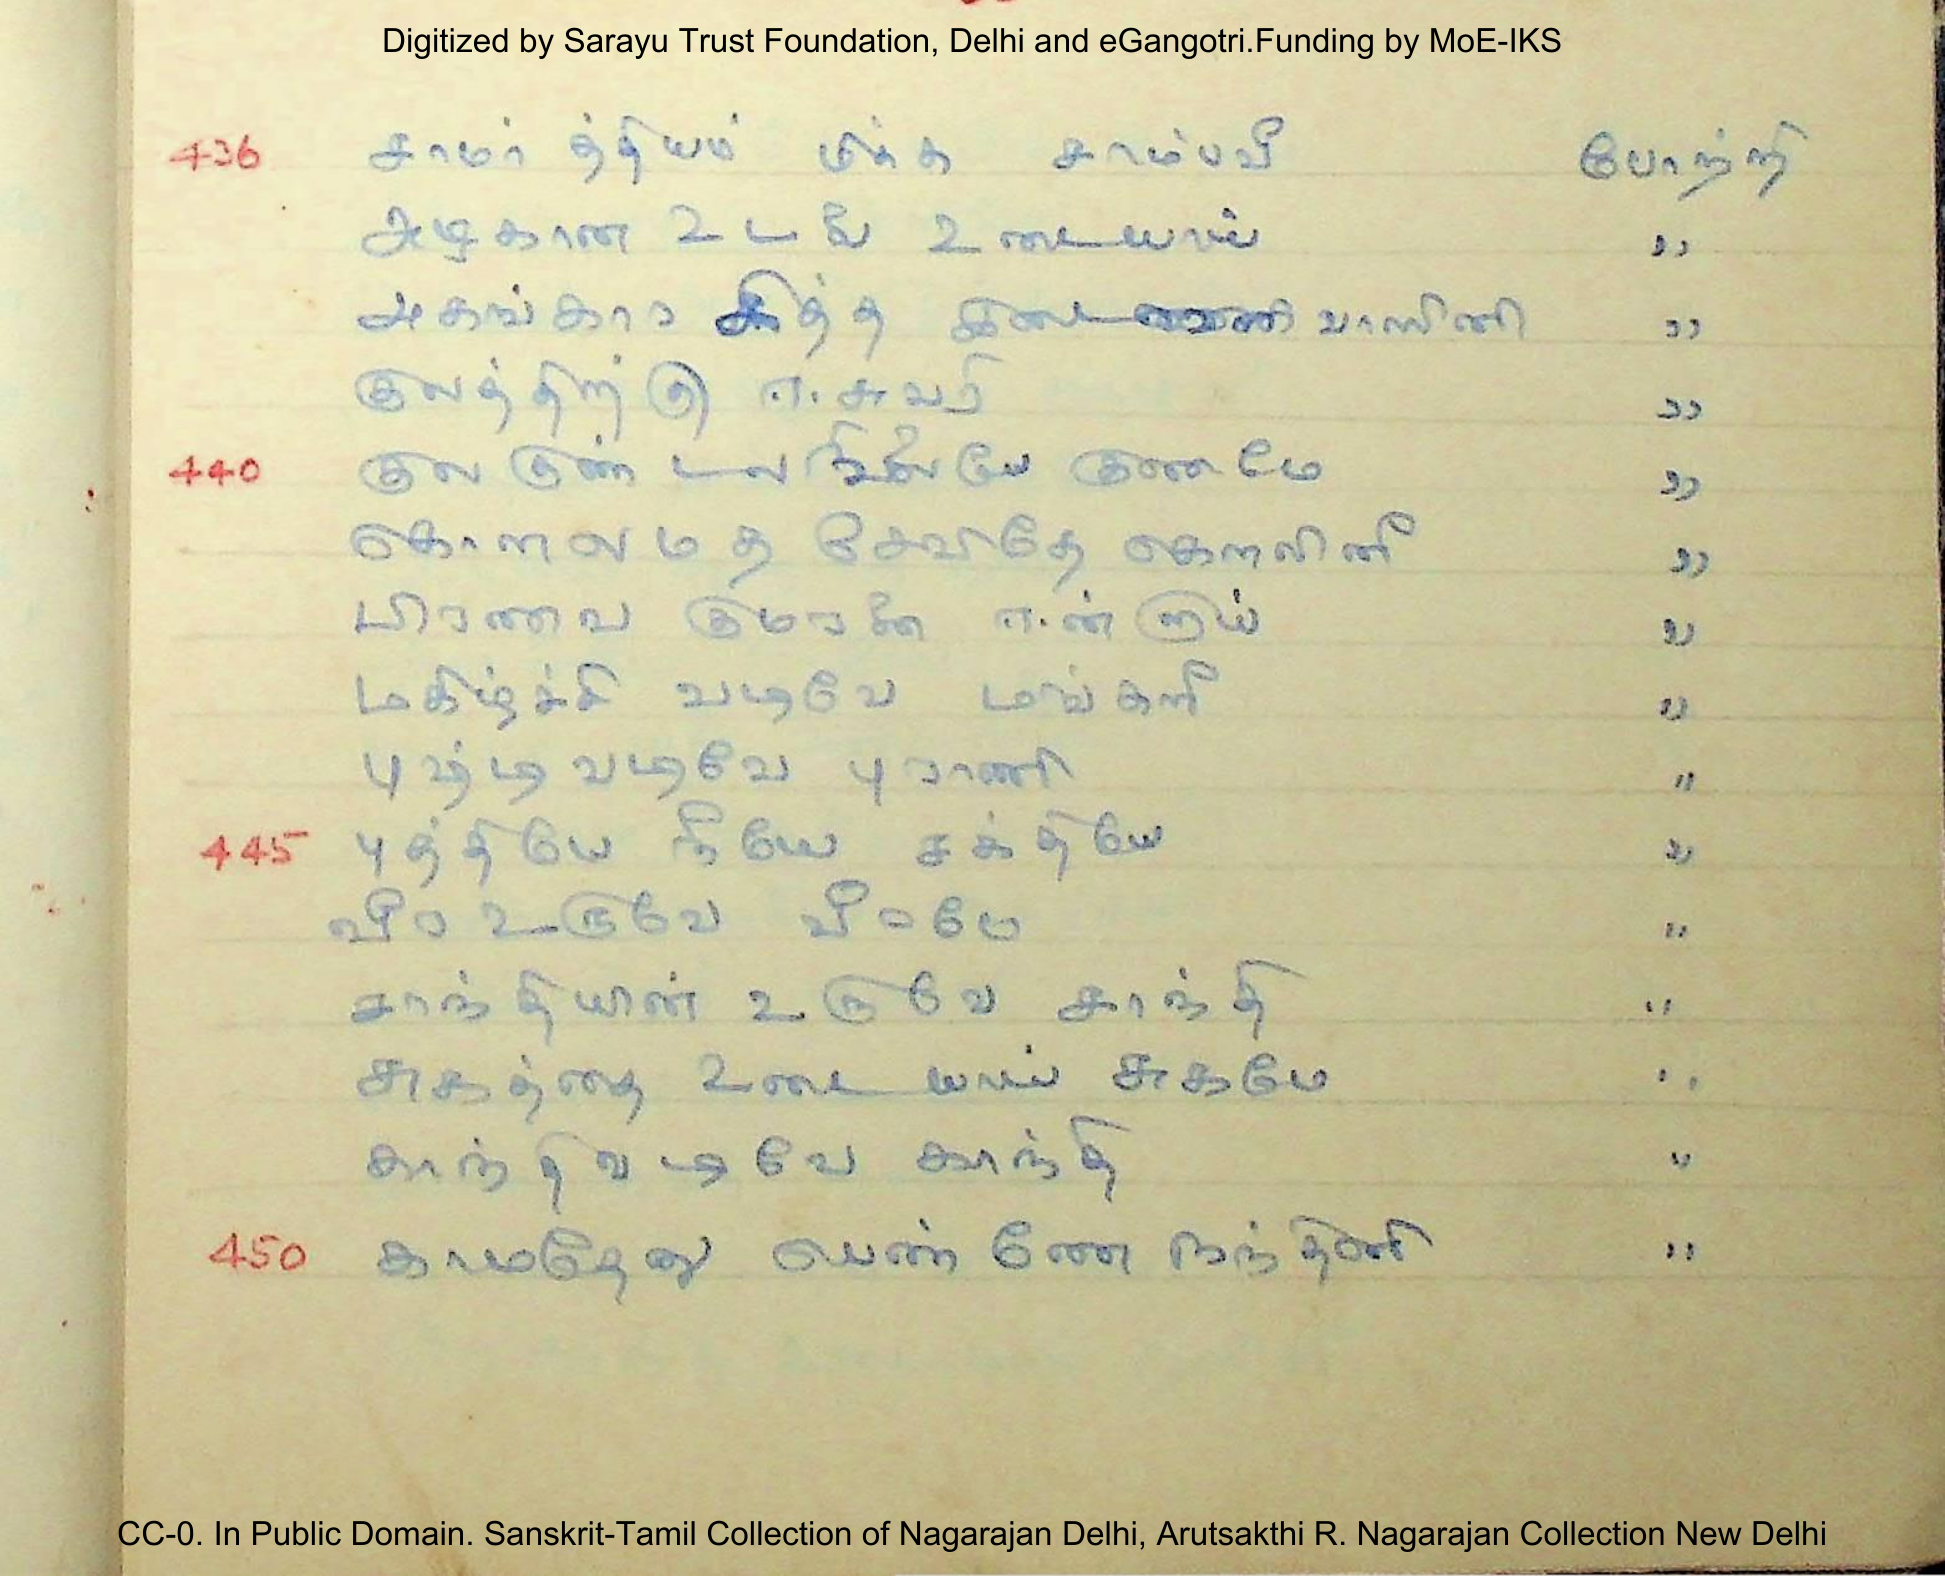 Digitized by Sarayu Trust Foundation, Delhi and eGangotri.Funding by MoE-IKS
436 சாமர்த்தியம் மிக்க சாம்பவீ போற்றி
அழகான உடல் உடையாய் "
அகங்கார சித்த வாஸினி "
குலத்திற்கு ஈசுவரி "
440 குல குண்டல குணமே "
கொளலமத சேவிதே கௌலினீ "
பிரணவ குமரகன் ஈன்றாய் "
மகிழ்ச்சி வடிவே மங்களீ "
புஷ்டி வடிவே புராணி "
445 புத்தியே நீயே சக்தியே "
வீர உருவே வீரமே "
சாந்தியின் உருவே சாந்தி "
சுகத்தை உடையாய் சுகமே "
காந்தி வடிவே காந்தி "
450 காமதேனு பெண்ணே நந்தினி "
CC-0. In Public Domain. Sanskrit-Tamil Collection of Nagarajan Delhi, Arutsakthi R. Nagarajan Collection New Delhi